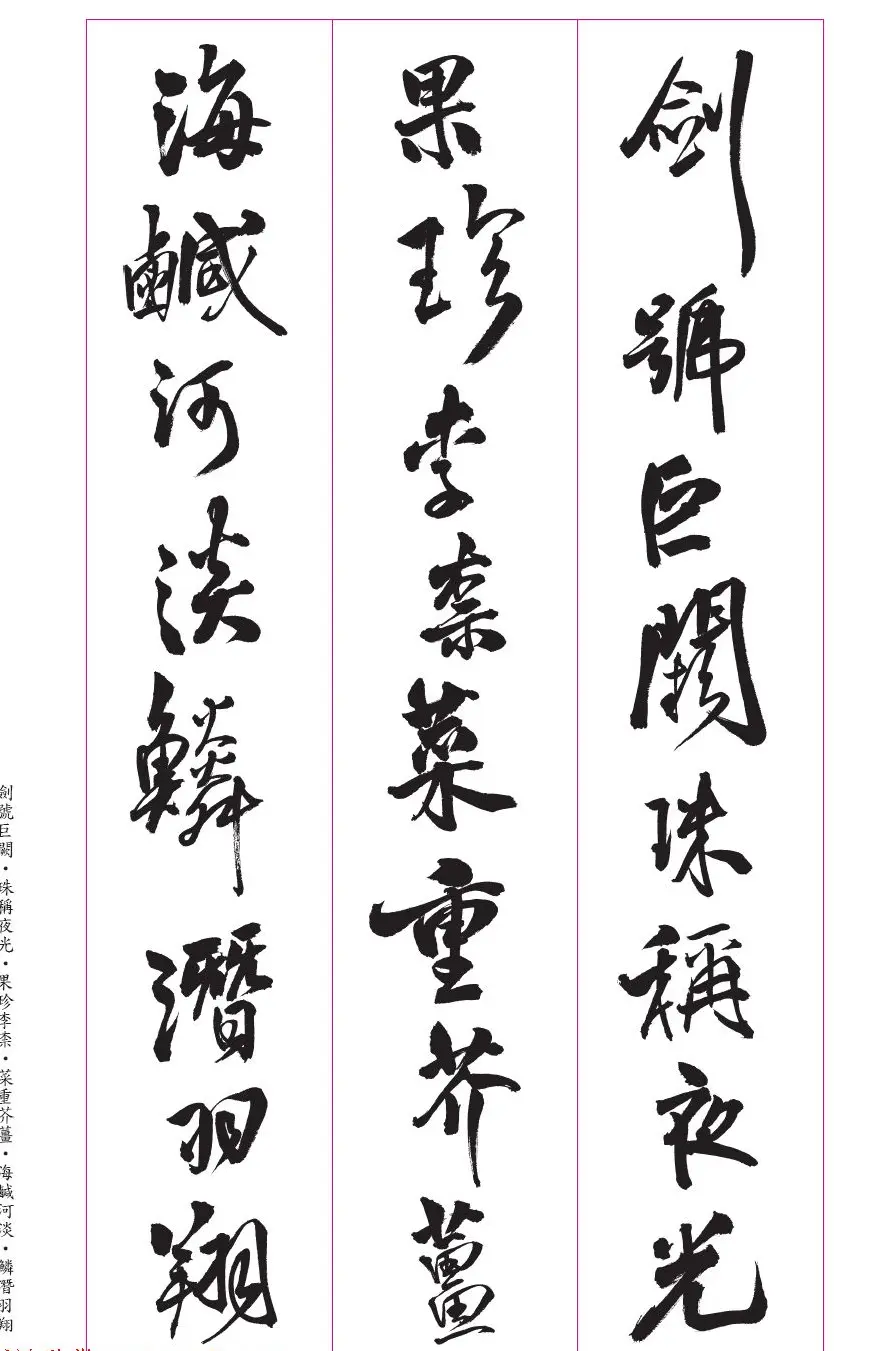 劍號巨闕珠稱夜光
果珍李柰菜重芥薑
海鹹河淡鱗潛羽翔
劍號巨闕·珠稱夜光·果珍李柰·菜重芥薑·海鹹河淡·鱗潛羽翔